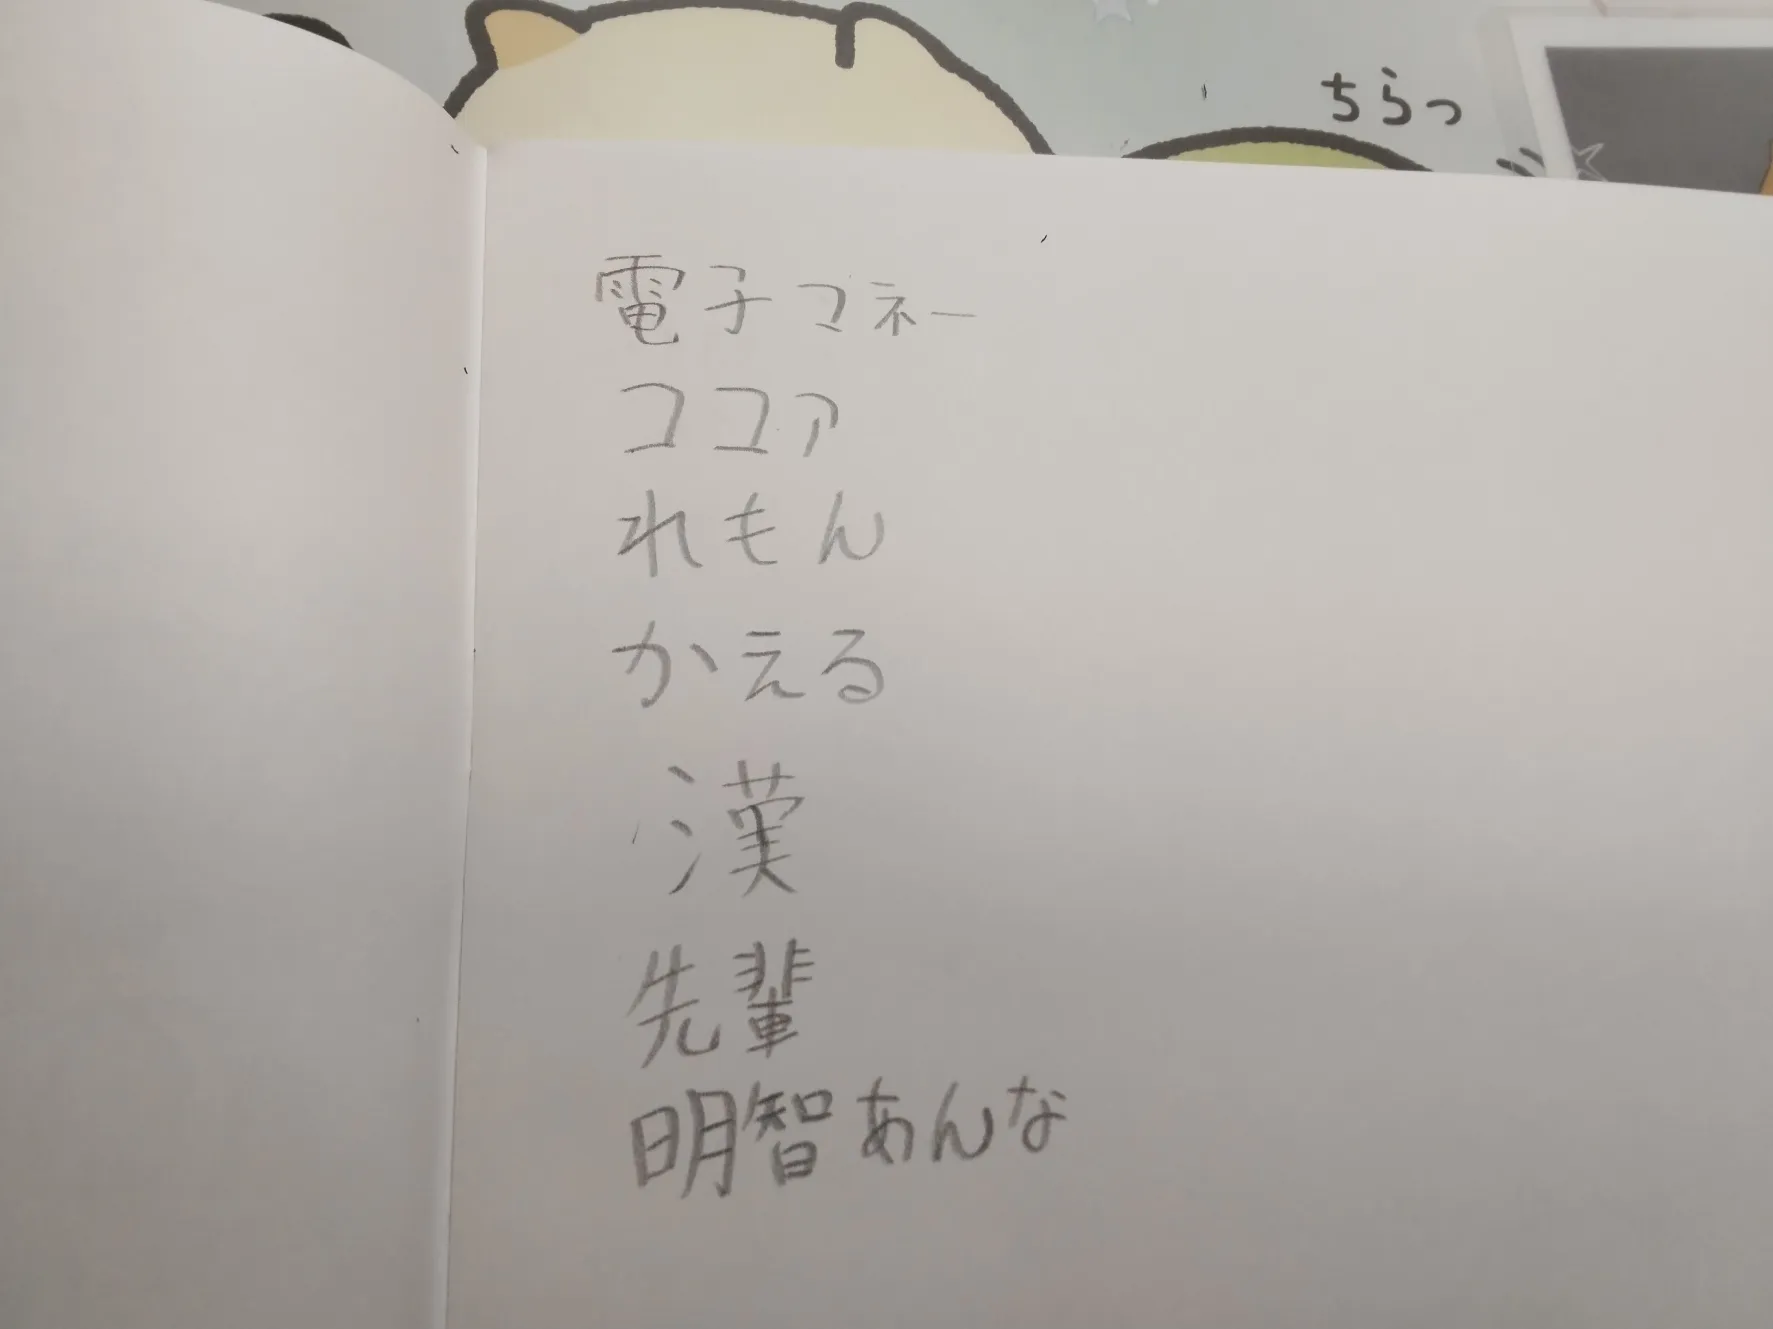 ちらっ
電子マネー
ココア
れもん
かえる
漢
先輩
明智あんな